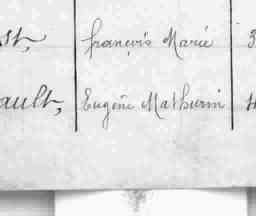 st, François Marie 3
ault, Eugène Mathurin